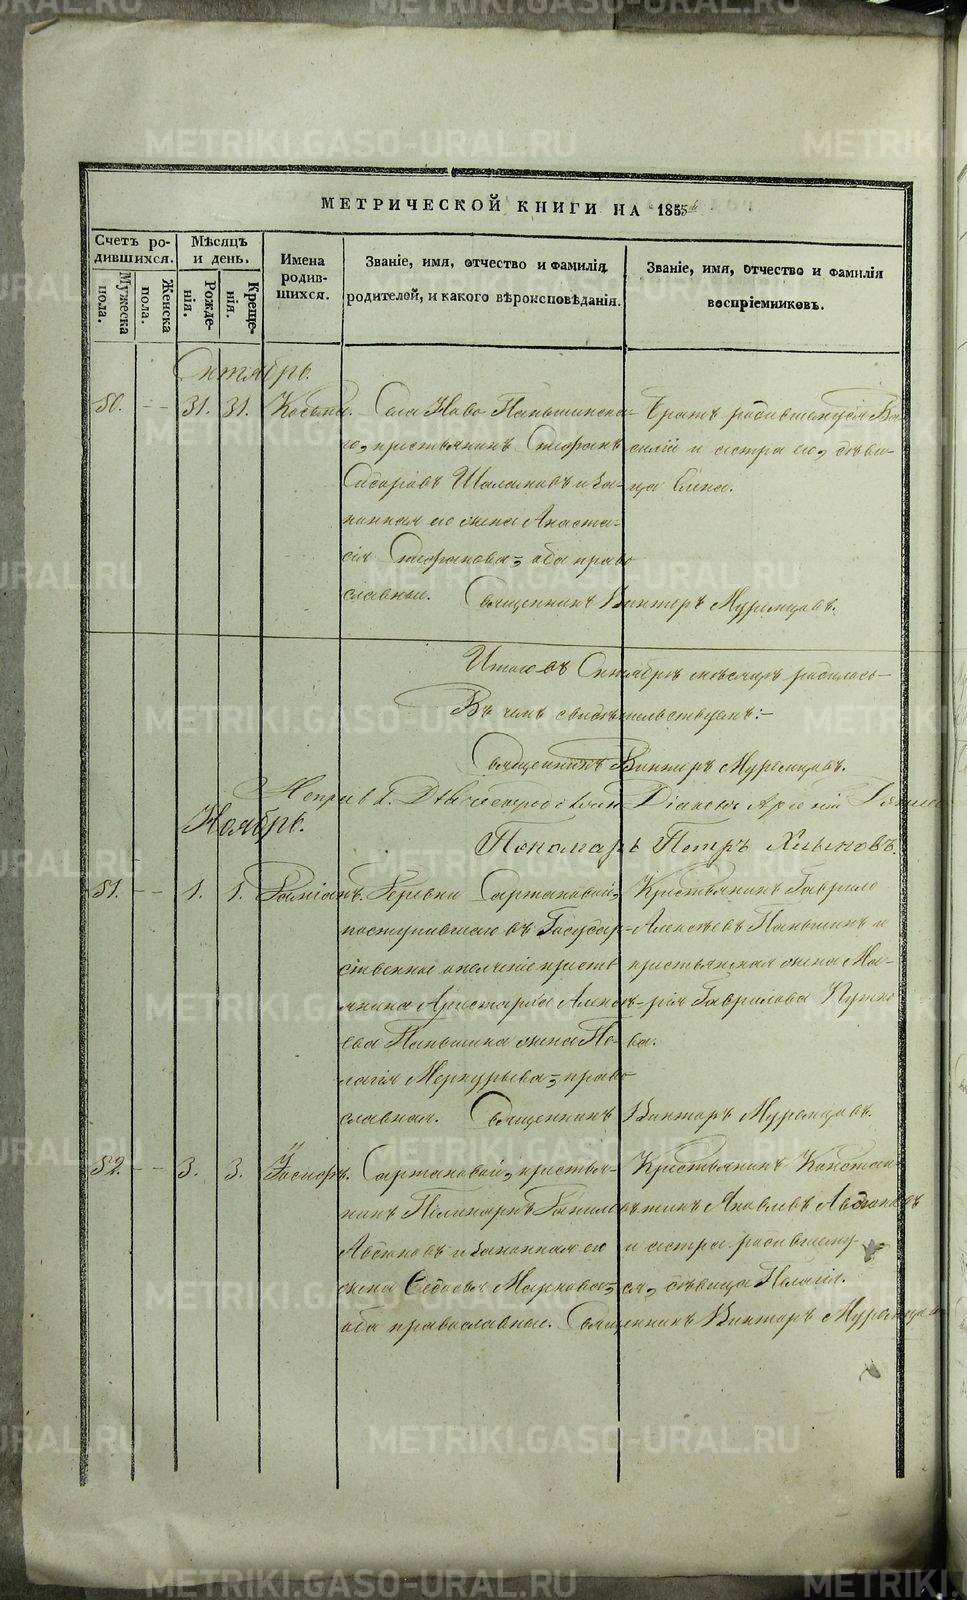 МЕТРИЧЕСКОЙ КНИГИ НА 1855
Счетъ ро-
дившихся.
Мужеска
пола.
Женска
пола.
Мѣсяцъ
и день.
Рожде-
нія.
Креще-
нія.
Имена
родив-
шихся.
Званіе, имя, отчество и фамилія
родителей, и какого вѣроисповѣданія.
Званіе, имя, отчество и фамилія
воспріемниковъ.
Октябрь.
50. 31. 31. Косьма.
Села Ново Паньшинска-
го, крестьянинъ Стефанъ
Сидоровъ и за-
конная его жена Анаста-
сія Стефанова, оба право
славные. Священникъ Викторъ Муромцовъ.
Братъ родившагося Ва-
силій и сестра его, дѣви-
ца Елена.
Итого въ Октябрѣ мѣсяцѣ родилось
Въ чемъ свидѣтельствуемъ:
Священникъ Викторъ Муромцовъ.
Діаконъ
Пономарь Петръ Хлыновъ.
Ноябрь.
51. 1. 1. Даміанъ.
Деревни Сартаковой,
поступившаго въ Государ-
ственное ополченіе кресть
янина Аристарха Алексѣ-
ева Паньшина жена Пе-
лагія Меркурьева, право
славная. Священникъ Викторъ Муромцовъ.
Крестьянинъ Гаврило
Алексѣевъ Паньшинъ и
крестьянская жена Ма-
рія Гаврилова
ва.
52. 3. 3. Іосифъ.
Сартаковой, крестья-
нинъ Поликарпъ Данило
Авдюковъ и законная его
жена Ѳедосья Маркова,
оба православные. Священникъ Викторъ Муромцовъ
Крестьянинъ Констан-
тинъ Яковлевъ Авдюковъ
и сестра родившему-
ся, дѣвица Пелагія.